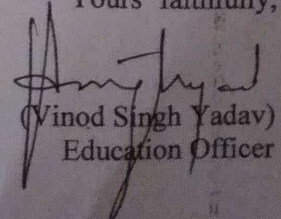 Yours faithfully,
(Vinod Singh Yadav)
Education Officer